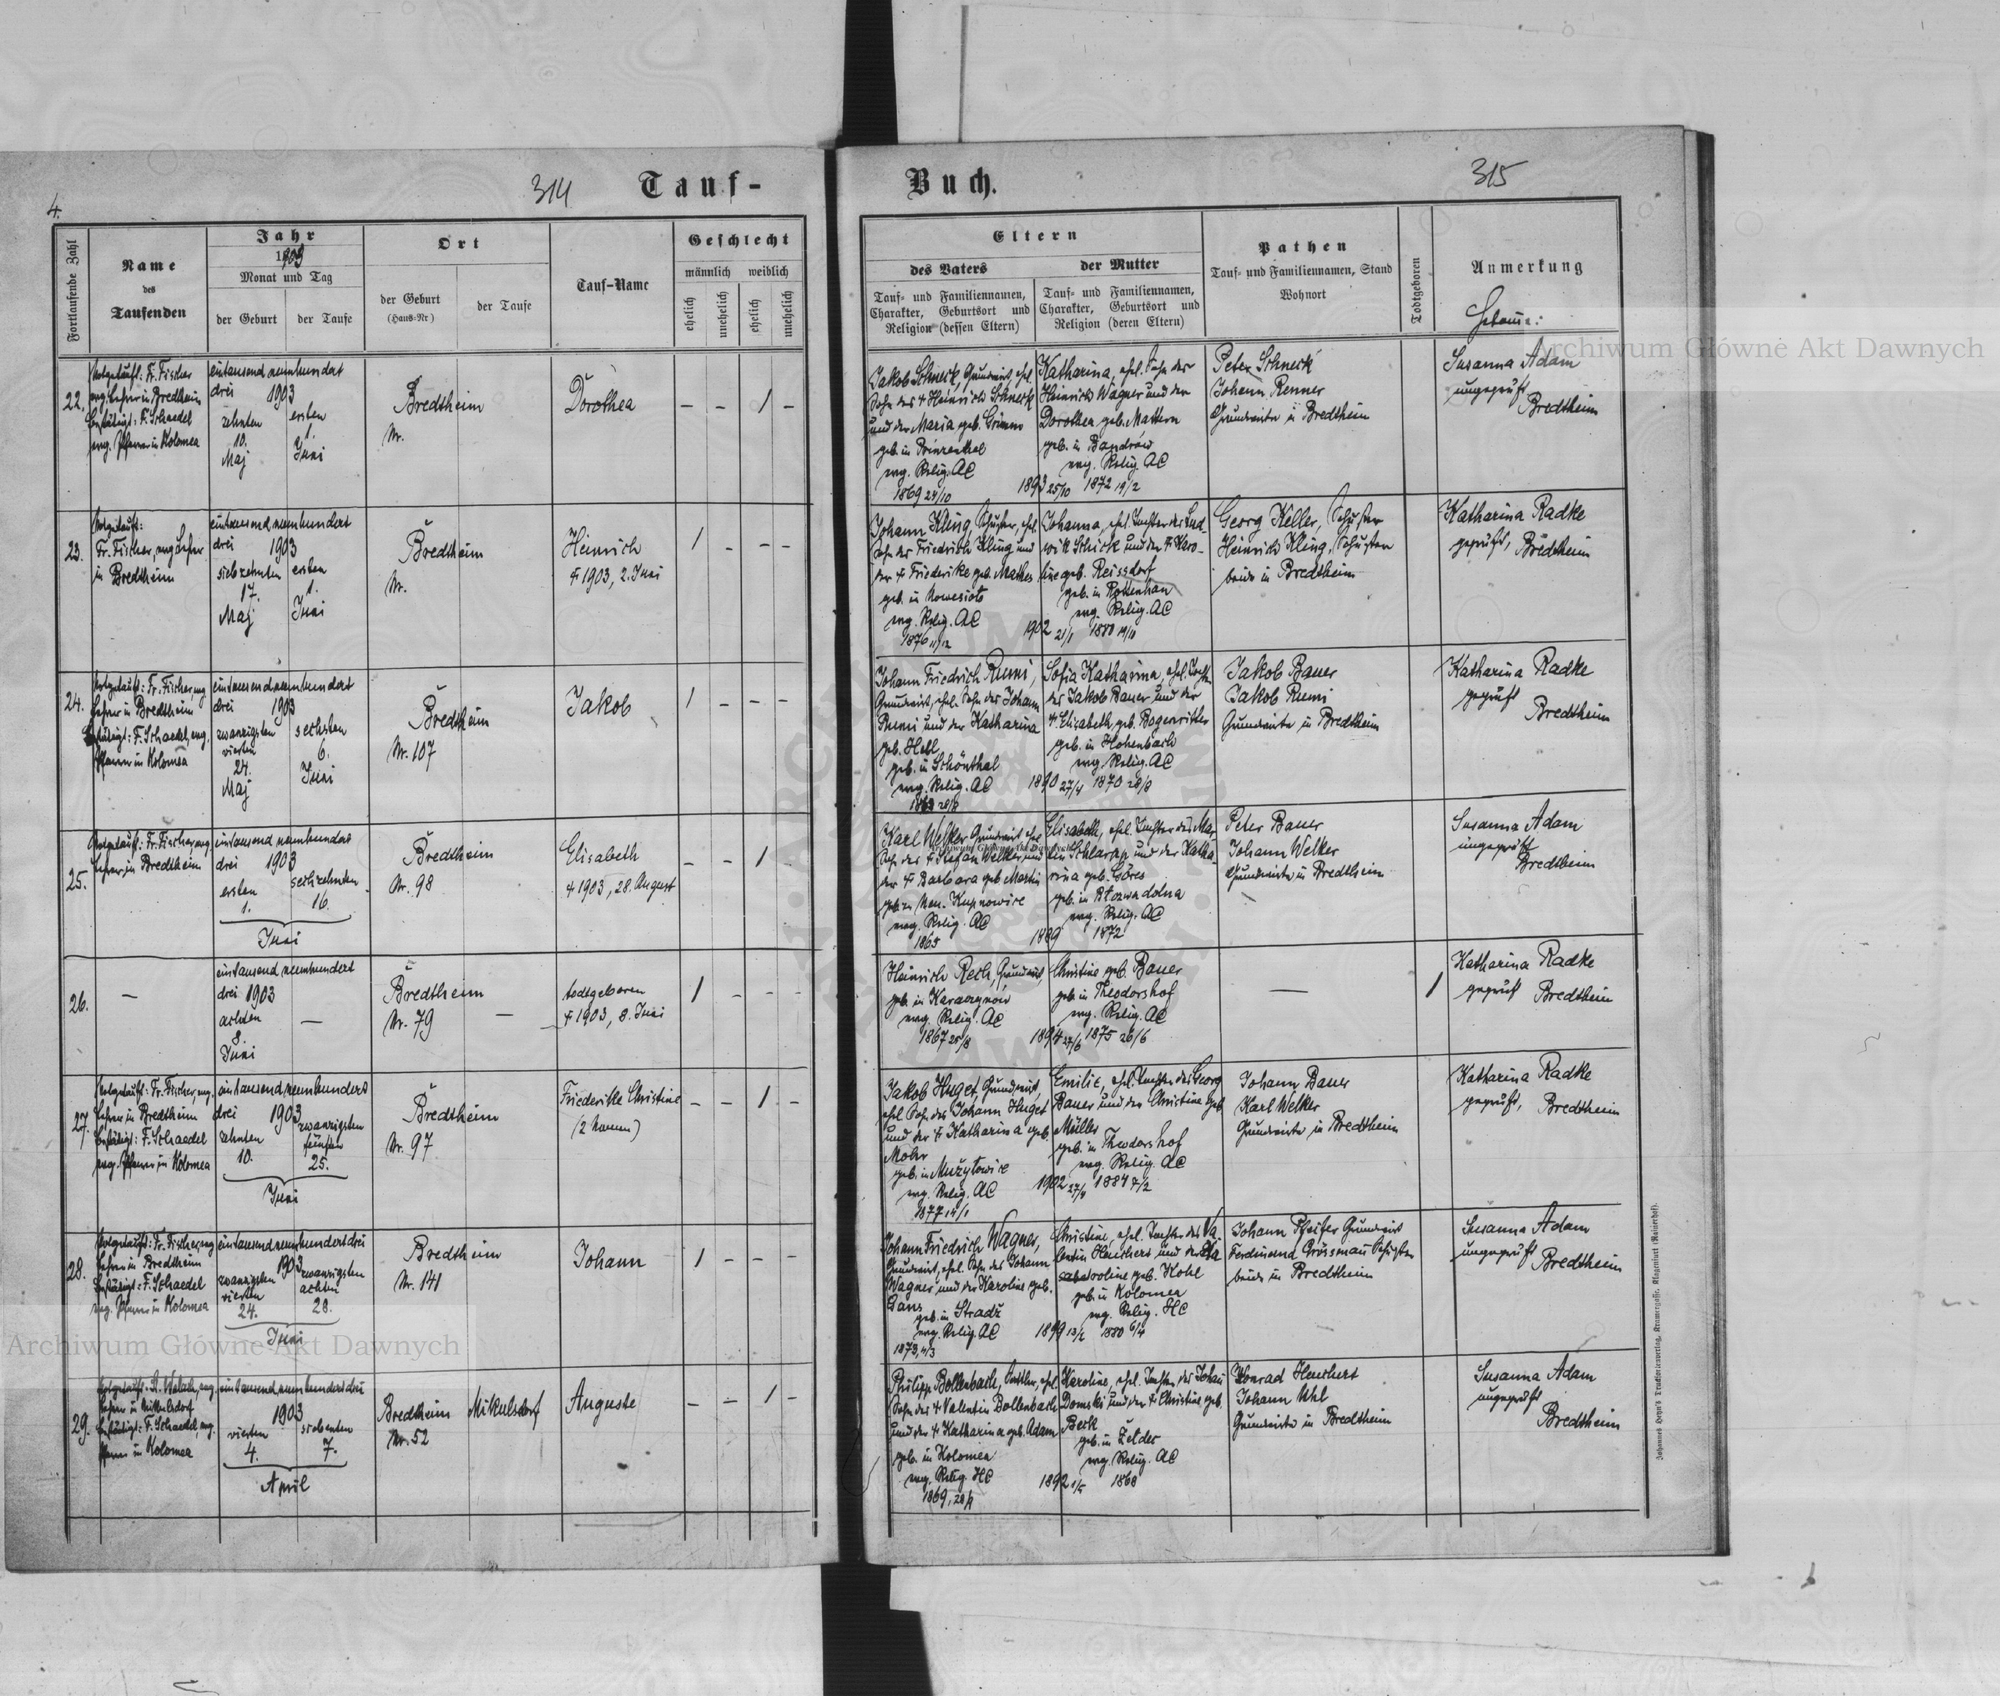 314
Tauf-
Buch.
315
4.
Fortlaufende Zahl
Name
des
Taufenden
Jahr
1903
Monat und Tag
der Geburt
der Taufe
Ort
der Geburt
(Haus-Nr)
der Taufe
Tauf-Name
Geschlecht
männlich
weiblich
ehelich
unehelich
ehelich
unehelich
Eltern
des Vaters
der Mutter
Tauf- und Familiennamen,
Charakter, Geburtsort und
Religion (dessen Eltern)
Tauf- und Familiennamen,
Charakter, Geburtsort und
Religion (deren Eltern)
Pathen
Tauf- und Familiennamen, Stand
Wohnort
Todtgeboren
Anmerkung
Archiwum Główne Akt Dawnych
22.
Notgetauft: Fr. Fischer
evg. Lehrer in Bredtheim
Bestätigt: F. Schaedel
evg. Pfarrer in Kolomea
eintausend neunhundert
drei 1903
zehnten
10.
Maj
ersten
1.
Juni
Bredtheim
Nr.
Dorothea
– – / –
Jakob Schneck, Grundwirt, ehel.
Sohn des + Heinrich Schneck
und der Maria geb. Grimm
geb. in
evg. Relig. AC
1869 24/10
1893 25/10
Katharina, ehel.
Heinrich Wagner und der
Dorothea geb. Mattern
geb. in Bandrów
evg. Relig. AC
1872 19/2
Peter Schneck
Johann Renner
Grundwirte in Bredtheim
Susanna Adam
ungeprüft
Bredtheim
23.
Notgetauft:
Fr. Fischer, evg. Lehrer
in Bredtheim
eintausend neunhundert
drei 1903
siebzehnten
17.
Maj
ersten
1.
Juni
Bredtheim
Nr.
Heinrich
+ 1903, 2. Juni
/ – – –
Johann Kling, Schuster, ehel.
Sohn des Friedrich Kling und
der + Friederike geb. Mathes
geb. in
evg. Relig. AC
1876 11/12
1902 21/1
Johanna, ehel. Tochter des Lud-
wik Schick und der + Karo-
line geb. Reissdorf
geb. in Rottenhan
evg. Relig. AC
1880 19/10
Georg Keller, Schuster
Heinrich Kling, Schuster
beide in Bredtheim
Katharina Radke
geprüft, Bredtheim
24.
Notgetauft: Fr. Fischer evg.
Lehrer in Bredtheim
Bestätigt: F. Schaedel, evg.
Pfarrer in Kolomea
eintausend neunhundert
drei 1903
zwanzigsten
vierten
24.
Maj
sechsten
6.
Juni
Bredtheim
Nr. 107
Jakob
/ – – –
Johann Friedrich Rumi,
Grundwirt, ehel. Sohn des Johann
Rumi und der Katharina
geb. Hell
geb. in Schönthal
evg. Relig. AC
1890 27/4
Sofia Katharina, ehel. Tocht.
des Jakob Bauer und der
+ Elisabeth, geb. Bogenritter
geb. in Hohenbach
evg. Relig. AC
Jakob Bauer
Jakob Rumi
Grundwirte in Bredtheim
Katharina Radke
geprüft
Bredtheim
25.
Notgetauft: Fr. Fischer, evg.
Lehrer, in Bredtheim
eintausend neunhundert
drei 1903
ersten
1.
sechzehnten
16.
Juni
Bredtheim
Nr. 98
Elisabeth
+ 1903, 28. August
– – / –
Karl Welker Grundwirt ehel.
Sohn des + Stefan Welker und
der + Barbara geb. Martin
geb. in Neu-Kupnowice
evg. Relig. AC
1865
1889
Elisabeth, ehel. Tochter des Mar-
tin Schlarpp und der Katha-
rina geb. Göres
geb. in
evg. Relig. AC
1872
Peter Bauer
Johann Welker
Grundwirte in Bredtheim
Susanna Adam
ungeprüft
Bredtheim
26.
–
eintausend neunhundert
drei 1903
achten
8.
Juni
–
Bredtheim
Nr. 79
–
todtgeboren
+ 1903, 8. Juni
/ – – –
Heinrich Rech, Grundwirt,
geb. in
evg. Relig. AC
1867 25/8
1894 27/6
Christine geb. Bauer
geb. in Theodorshof
evg. Relig. AC
1875 26/6
–
/
Katharina Radke
geprüft Bredtheim
27.
Notgetauft: Fr. Fischer, evg.
Lehrer in Bredtheim
Bestätigt: F. Schaedel
evg. Pfarrer in Kolomea
eintausend, neunhundert
drei 1903
zehnten
10.
zwanzigsten
fünften
25.
Juni
Bredtheim
Nr. 97
Friederike Christine
(2 Namen)
– – / –
Jakob Huget, Grundwirt,
ehel. Sohn des Johann Huget
und der + Katharina geb.
Mohr
geb. in Mużyłowice
evg. Relig. AC
1877 14/1
1902 27/4
Emilie, ehel. Tochter des Georg
Bauer und der Christine, geb.
Müller
geb. in Theodorshof
evg. Relig. AC
1884 7/2
Johann Bauer
Karl Welker
Grundwirte in Bredtheim
Katharina Radke
geprüft, Bredtheim
28.
Notgetauft: Fr. Fischer, evg.
Lehrer in Bredtheim
Bestätigt: F. Schaedel
evg. Pfarrer in Kolomea
eintausend neunhundert drei
1903
zwanzigsten
vierten
24.
zwanzigsten
achten
28.
Juni
Bredtheim
Nr. 141
Johann
/ – – –
Johann Friedrich Wagner,
Grundwirt, ehel. Sohn des Johann
Wagner, und der Karoline geb.
Ganz
geb. in Stradź
evg. Relig. AC
1873, 11/3
1899
Christine, ehel. Tochter des Va-
lentin Heuchert und der
geb. Kohl
geb. in Kolomea
evg. Relig. HC
1880 6/4
Johann Pfeifer Grundwirt
Ferdinand Grossman
beide in Bredtheim
Susanna Adam
ungeprüft
Bredtheim
Archiwum Główne Akt Dawnych
29.
Notgetauft: A. Walach, evg.
Lehrer in Mikulsdorf
Bestätigt: F. Schaedel, evg.
Pfarrer in Kolomea
eintausend, neunhundert drei
1903
vierten
4.
siebenten
7.
April
Bredtheim
Nr. 52
Mikulsdorf
Auguste
– – / –
Philipp Bollenbach, Sattler, ehel.
Sohn des + Valentin Bollenbach
und der + Katharina geb. Adam
geb. in Kolomea
evg. Relig. HC
1892
Karoline, ehel. Tochter des Johann
Domski und der + Christine geb.
Beck
geb. in Zelder
evg. Relig. AC
1868
Konrad Heuchert
Johann Uhl
Grundwirte in Bredtheim
Susanna Adam
ungeprüft
Bredtheim